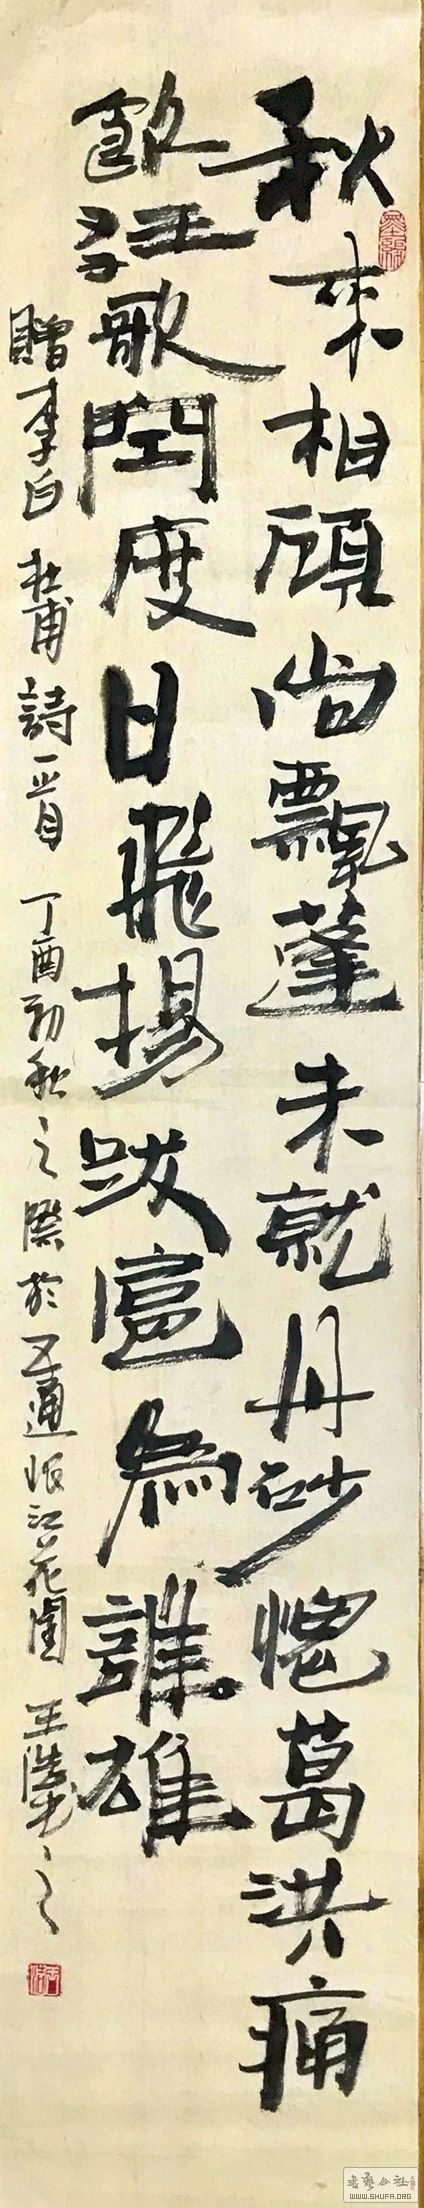 秋来相顧尚飄蓬未就丹砂愧葛洪痛
飲狂歌空度日飛揚跋扈為誰雄
贈李白 杜甫詩一首 丁酉初秋之際於五通岷江花園 王浩書之
書藝公社
WWW.SHUFA.ORG